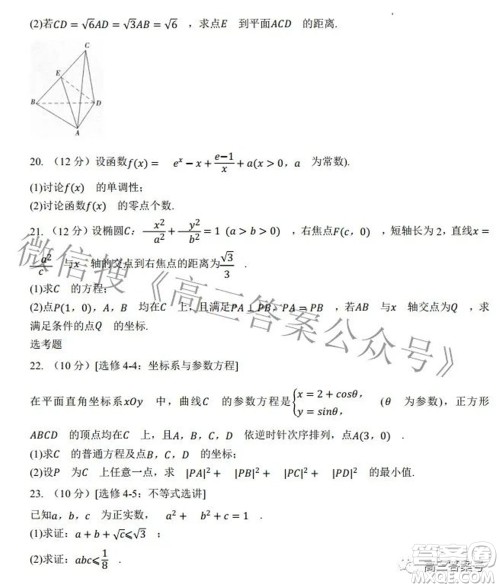 (2)若CD=√6AD=√3AB=√6 ，求点E 到平面ACD 的距离.
C
E
B
D
A
20.（12 分）设函数f(x)= e^x−x+(e−1)/x+a(x>0，a 为常数).
(1)讨论f(x) 的单调性；
(2)讨论函数f(x) 的零点个数.
21.（12 分）设椭圆C：x²/a²+y²/b²=1 (a>b>0) ，右焦点F(c，0) ，短轴长为 2，直线x=
a²/c 与x 轴的交点到右焦点的距离为√3/3 .
(1)求C 的方程；
(2)点P(1，0)，A，B 均在C 上，且满足PA⊥PB，PA=PB ，若AB 与x 轴交点为Q ，求
满足条件的点Q 的坐标.
选考题
22.（10 分）[选修 4-4：坐标系与参数方程]
在平面直角坐标系xOy 中，曲线C 的参数方程是{x=2+cosθ, y=sinθ, （θ 为参数），正方形
ABCD 的顶点均在C 上，且A，B，C，D 依逆时针次序排列，点A(3，0) .
(1)求C 的普通方程及点B，C，D 的坐标；
(2)设P 为C 上任意一点，求 |PA|²+ |PB|²+ |PC|²+ |PD|² 的最小值.
23.（10 分）[选修 4-5：不等式选讲]
已知a，b，c 为正实数， a²+ b²+c=1 .
(1)求证：a+b+√c⩽√3 ；
(2)求证：abc⩽1/8 .
微信搜《高三答案公众号》
高三答案号